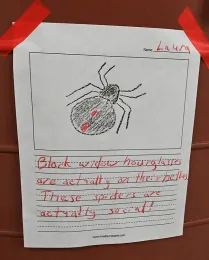 Name: Laura
Black widow hourglasses
are actually on their bellies
These spiders are
actually social!